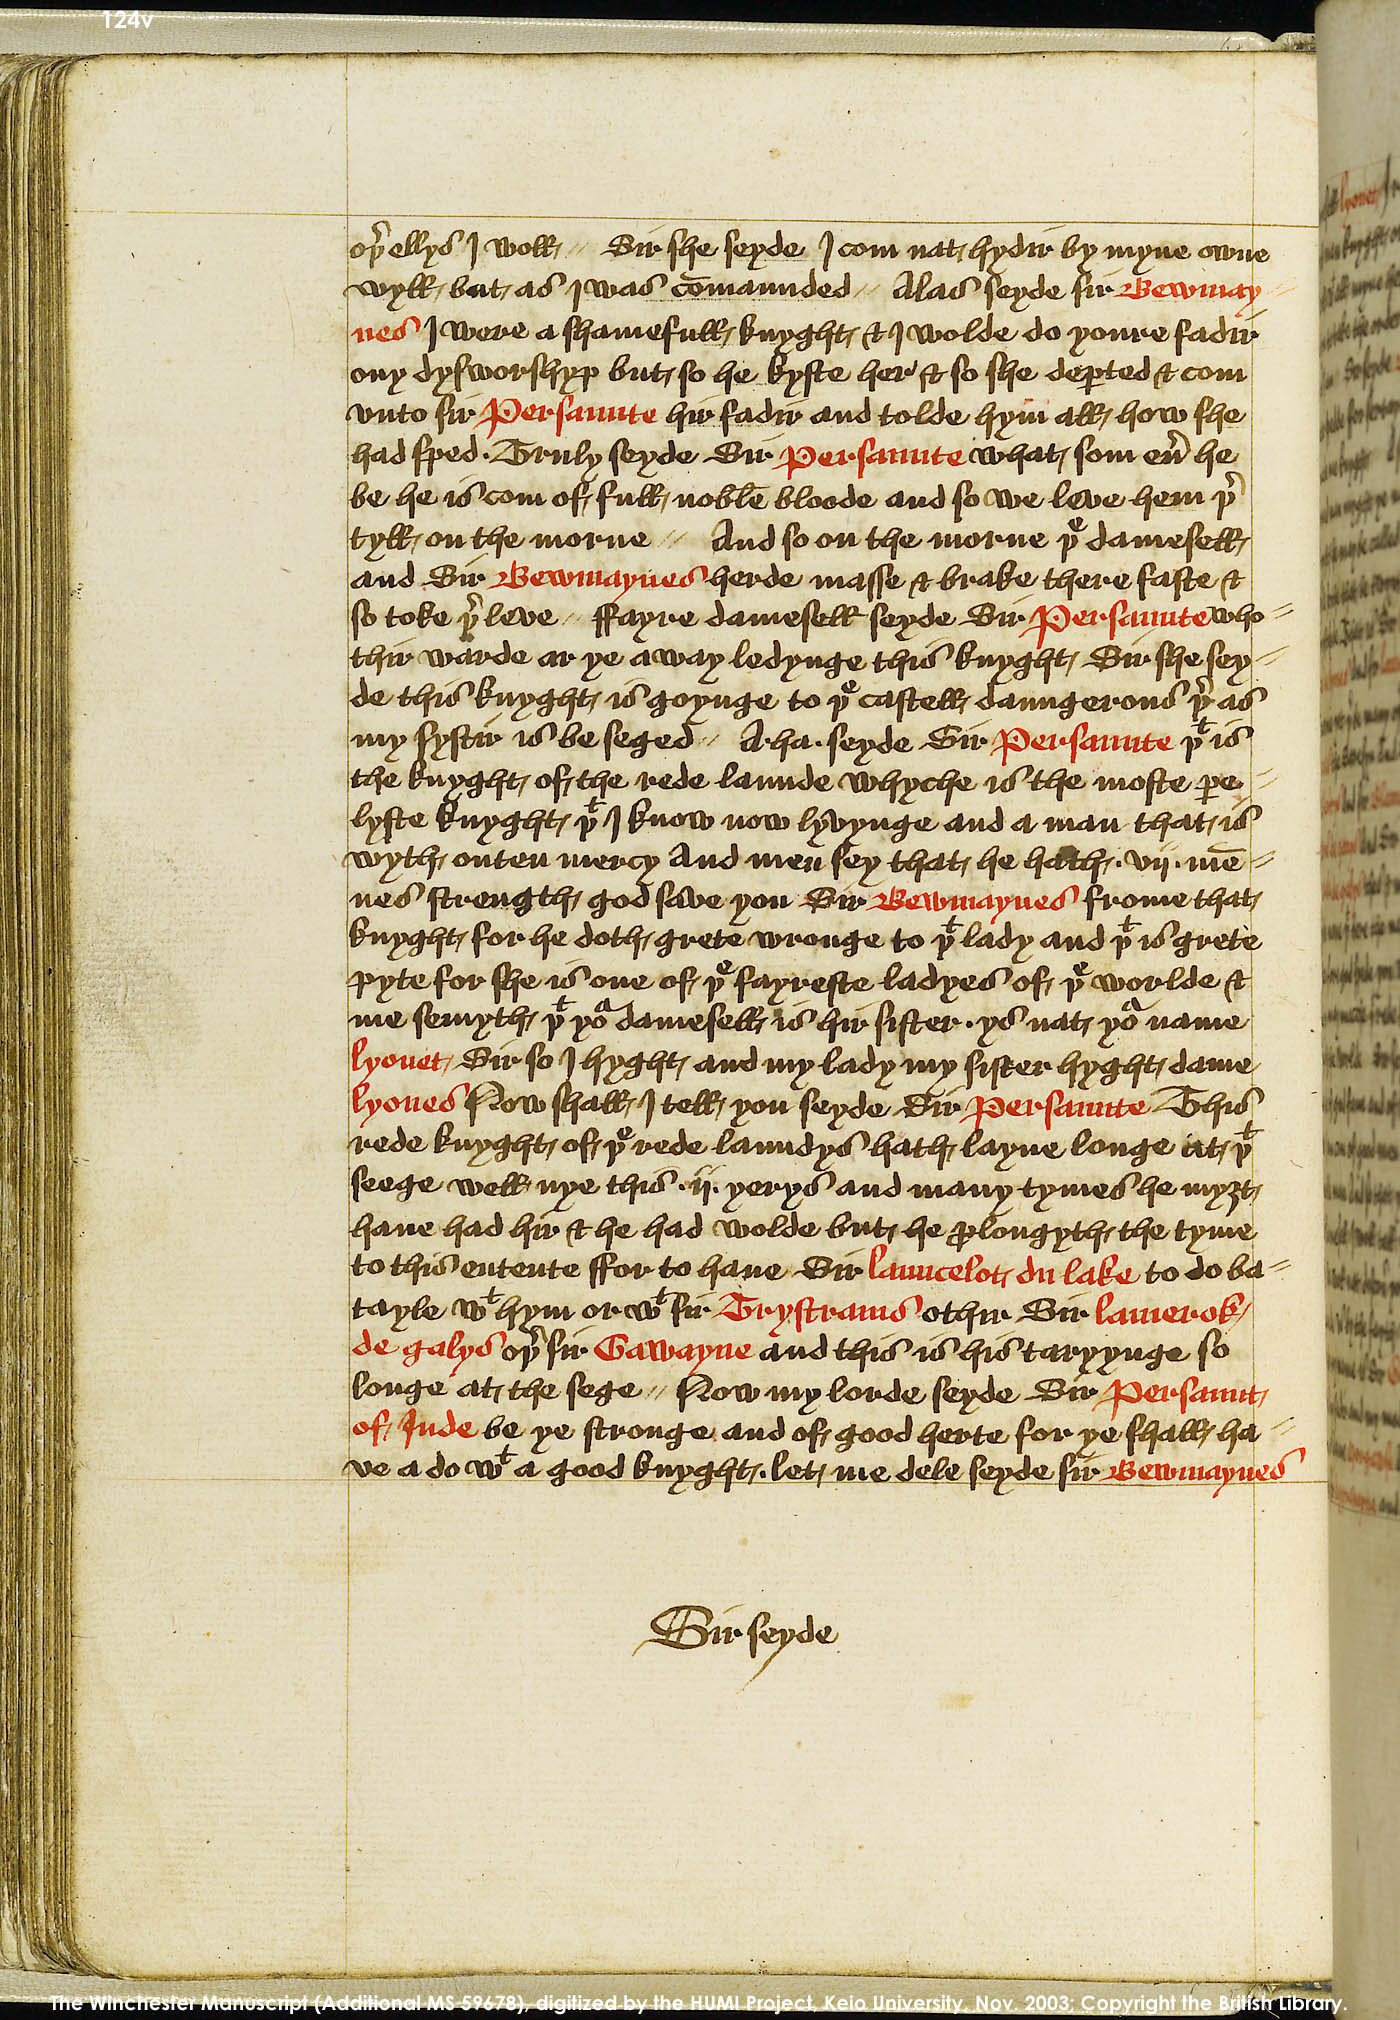 124v
oþͬ ellys I woll // Sir she seyde I com nat hydir by myne owne
wyll but as I was cōmaunded // Alas seyde sir Bewmay⸗
nes I were a shamefull knyght & I wolde do youre fadir
ony dysworshyp but so he kyste her & so she deꝑted & com
vnto sir Persaunte hir fadir and tolde hym all how she
had sped. Truly seyde Sir Persaunte what som eủ he
be he is com of full noble bloode and so we leve hem þͬ
tyll on the morne // And so on the morne þͤ damesell
and Sir Bewmaynes herde masse & brake there faste &
so toke þͬ leve // ffayre damesell seyde Sir Persaunte who⸗
thir warde ar ye away ledynge this knyght Sir she sey⸗
de this knyght is goynge to þͤ castell daungerous þͬ as
my systir is be seged // A ha. seyde Sir Persaunte þͭ is
the knyght of the rede launde whyche is the moste ꝑe⸗
lyste knyght þͭ I know now lyvynge and a man that is
wyth outen mercy And men sey that he hath .vij. mē⸗
nes strength god save you Sir Bewmaynes frome that
knyght for he doth grete wronge to þͭ lady and þͭ is grete
pyte for she is one of þͤ fayreste ladyes of þͤ worlde &
me semyth þͭ yoͬ damesell is hir sister. ys nat yoͬ name
lyonet Sir so I hyght and my lady my sister hyght dame
lyones Now shall I tell you seyde Sir Persaunte This
rede knyght of þͤ rede laundys hath layne longe at þͭ
seege well nye this .ij. yerys and many tymes he myȝt
haue had hir & he had wolde but he ꝓlongyth the tyme
to this entente ffor to haue Sir launcelot du lake to do ba⸗
tayle wͭ hym or wͭ sir Trystrams othir Sir lamerok
de galys oþͬ sir Gawayne and this is his taryynge so
longe at the sege // Now my lorde seyde Sir Persaunt
of Inde be ye stronge and of good herte for ye shall ha⸗
ve a do wͭ a good knyght. let me dele seyde sir Bewmaynes
Sir seyde
The Winchester Manuscript (Additional MS 59678), digitized by the HUMI Project, Keio University, Nov. 2003; Copyright the British Library.